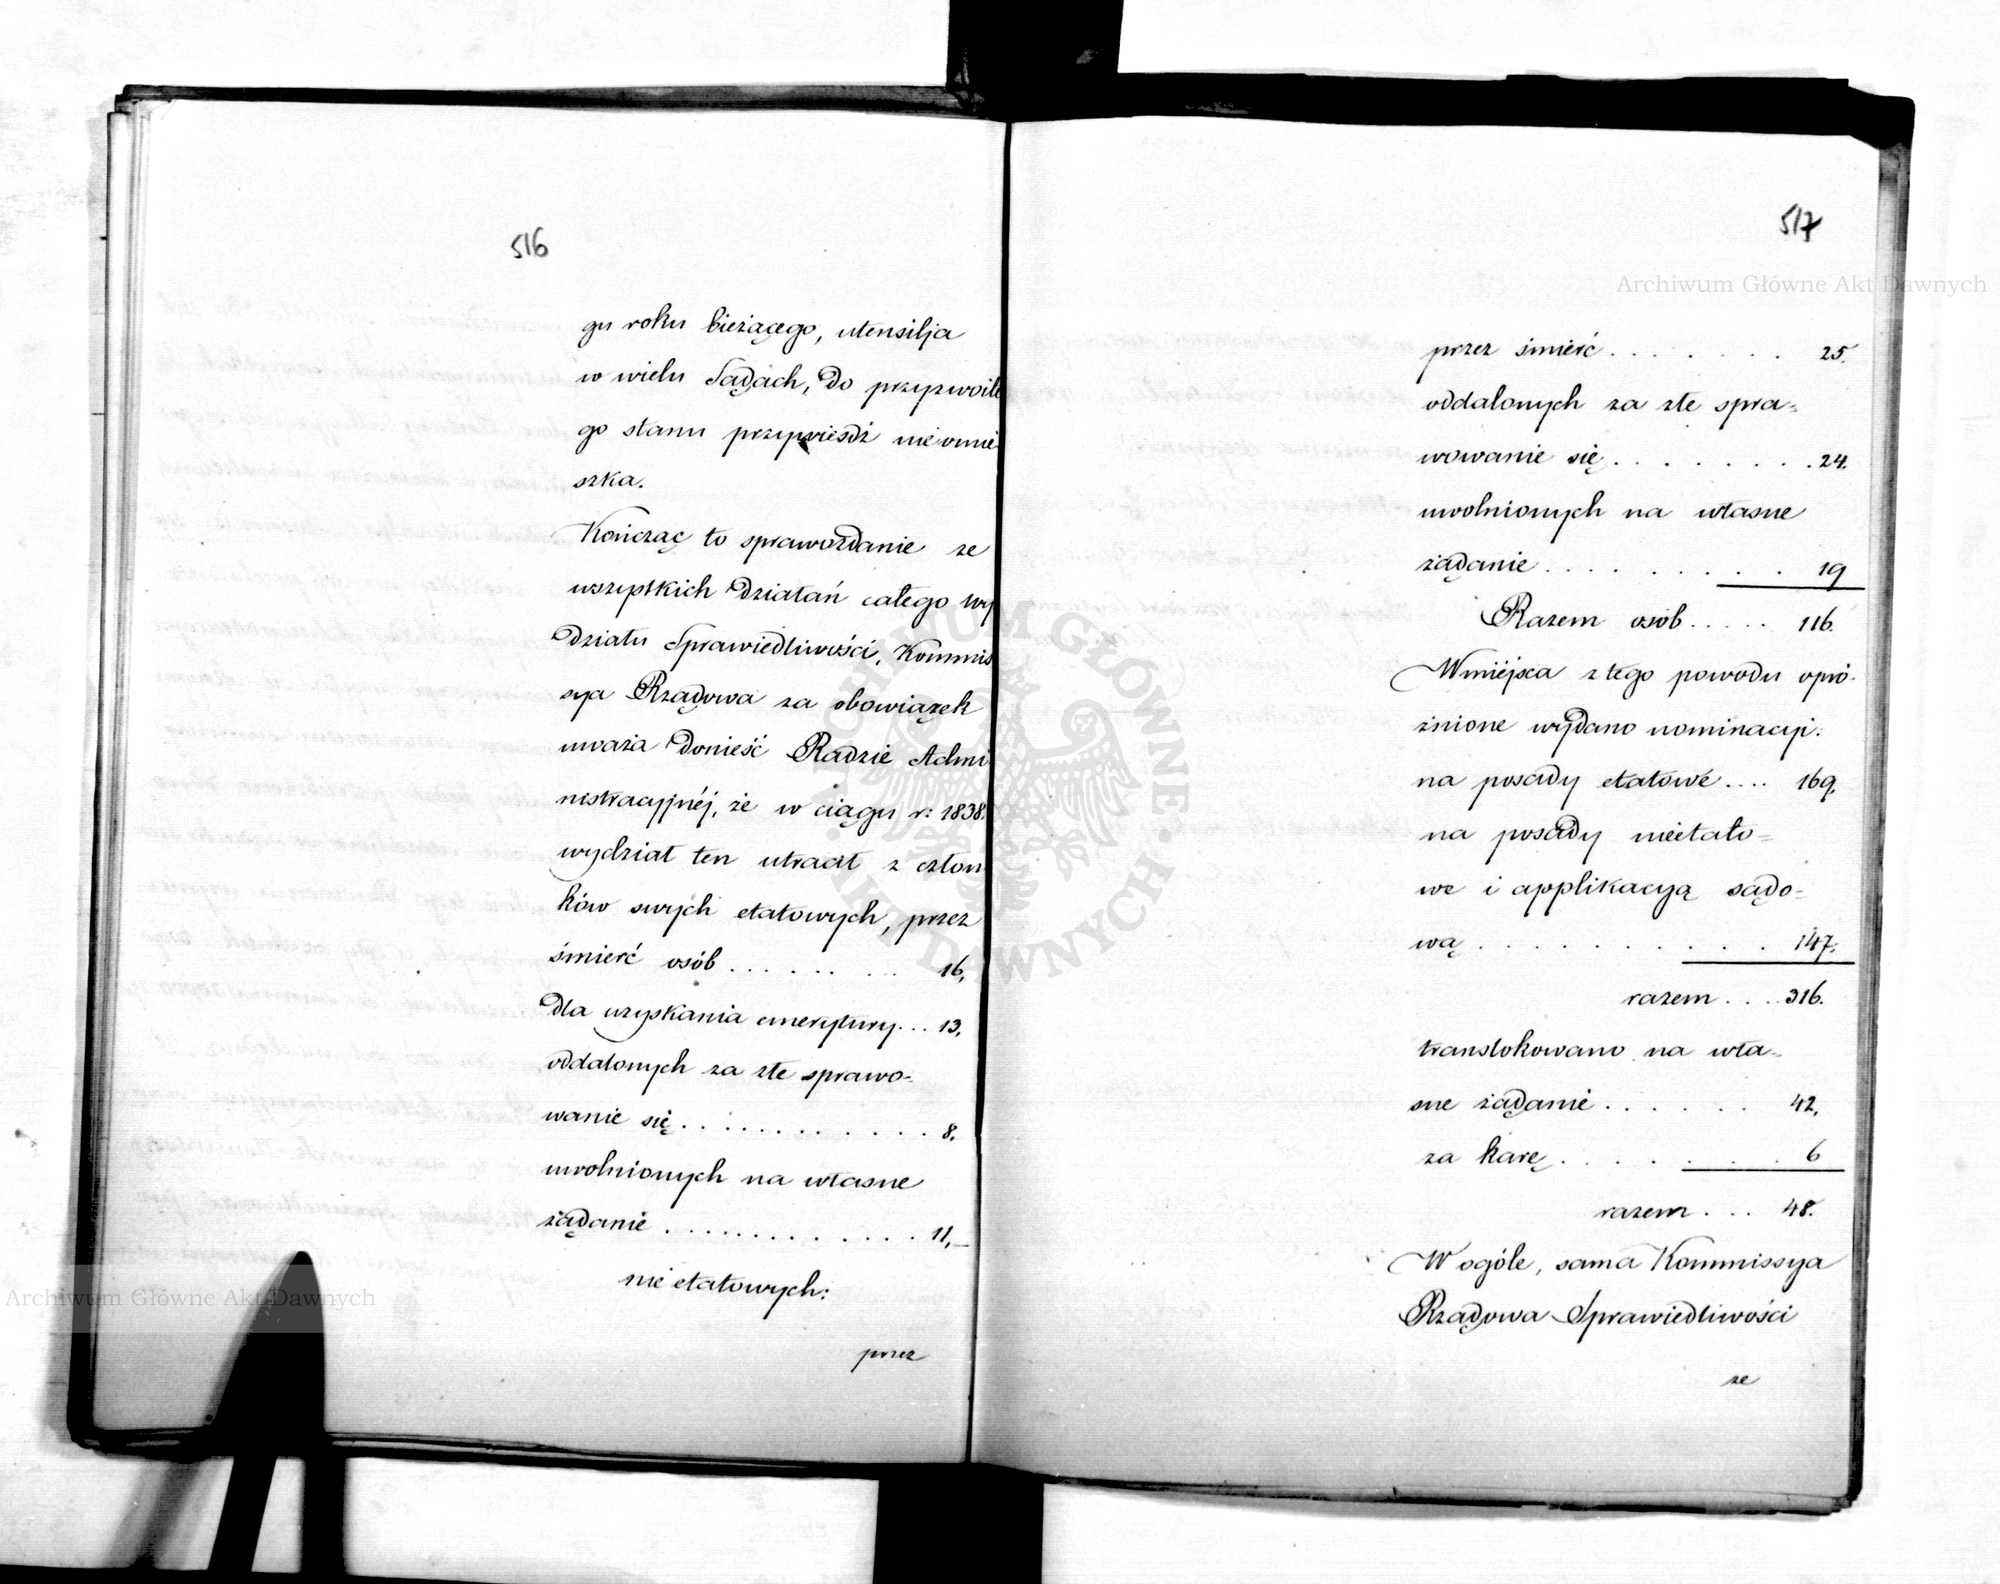 516
gu roku bieżącego, utensilja
w wielu Sądach, do przyzwoite
go stanu przywieśdź nie omie
szka.
Kończąc to sprawozdanie ze
wszystkich działań całego wy
działu Sprawiedliwości, Kommis
sya Rządowa za obowiązek
uważa donieść Radzie Admi
nistracyjnéj, że w ciągu r: 1838.
wydział ten utracił z człon
ków swych etatowych, przez
śmierć osób . . . . . . . . 16,
dla uzyskania emerytury . . . 13,
oddalonych za złe sprawo-
wanie się . . . . . . . . . . . . 8.
uwolnionych na własne
żądanie . . . . . . . . . . . . 11,
nie etatowych:
przez
517
przez śmierć . . . . . . . 25.
oddalonych za złe spra-
wowanie się . . . . . . . . 24.
uwolnionych na własne
żądanie . . . . . . . . 19
Razem osób . . . . . 116.
W miejsca z tego powodu opró-
żnione wydano nominacyi:
na posady etatowe . . . . 169,
na posady nieetato=
we i applikacyą sądo=
wą . . . . . . . . . . . 147.
razem . . . . 316.
translokowano na wła-
sne żądanie . . . . . . 42,
za karę . . . . . . . . 6
razem . . . 48.
W ogóle, sama Kommissya
Rządowa Sprawiedliwości
ze
Archiwum Główne Akt Dawnych
Archiwum Główne Akt Dawnych
ARCHIWUM GŁÓWNE · AKT DAWNYCH ·